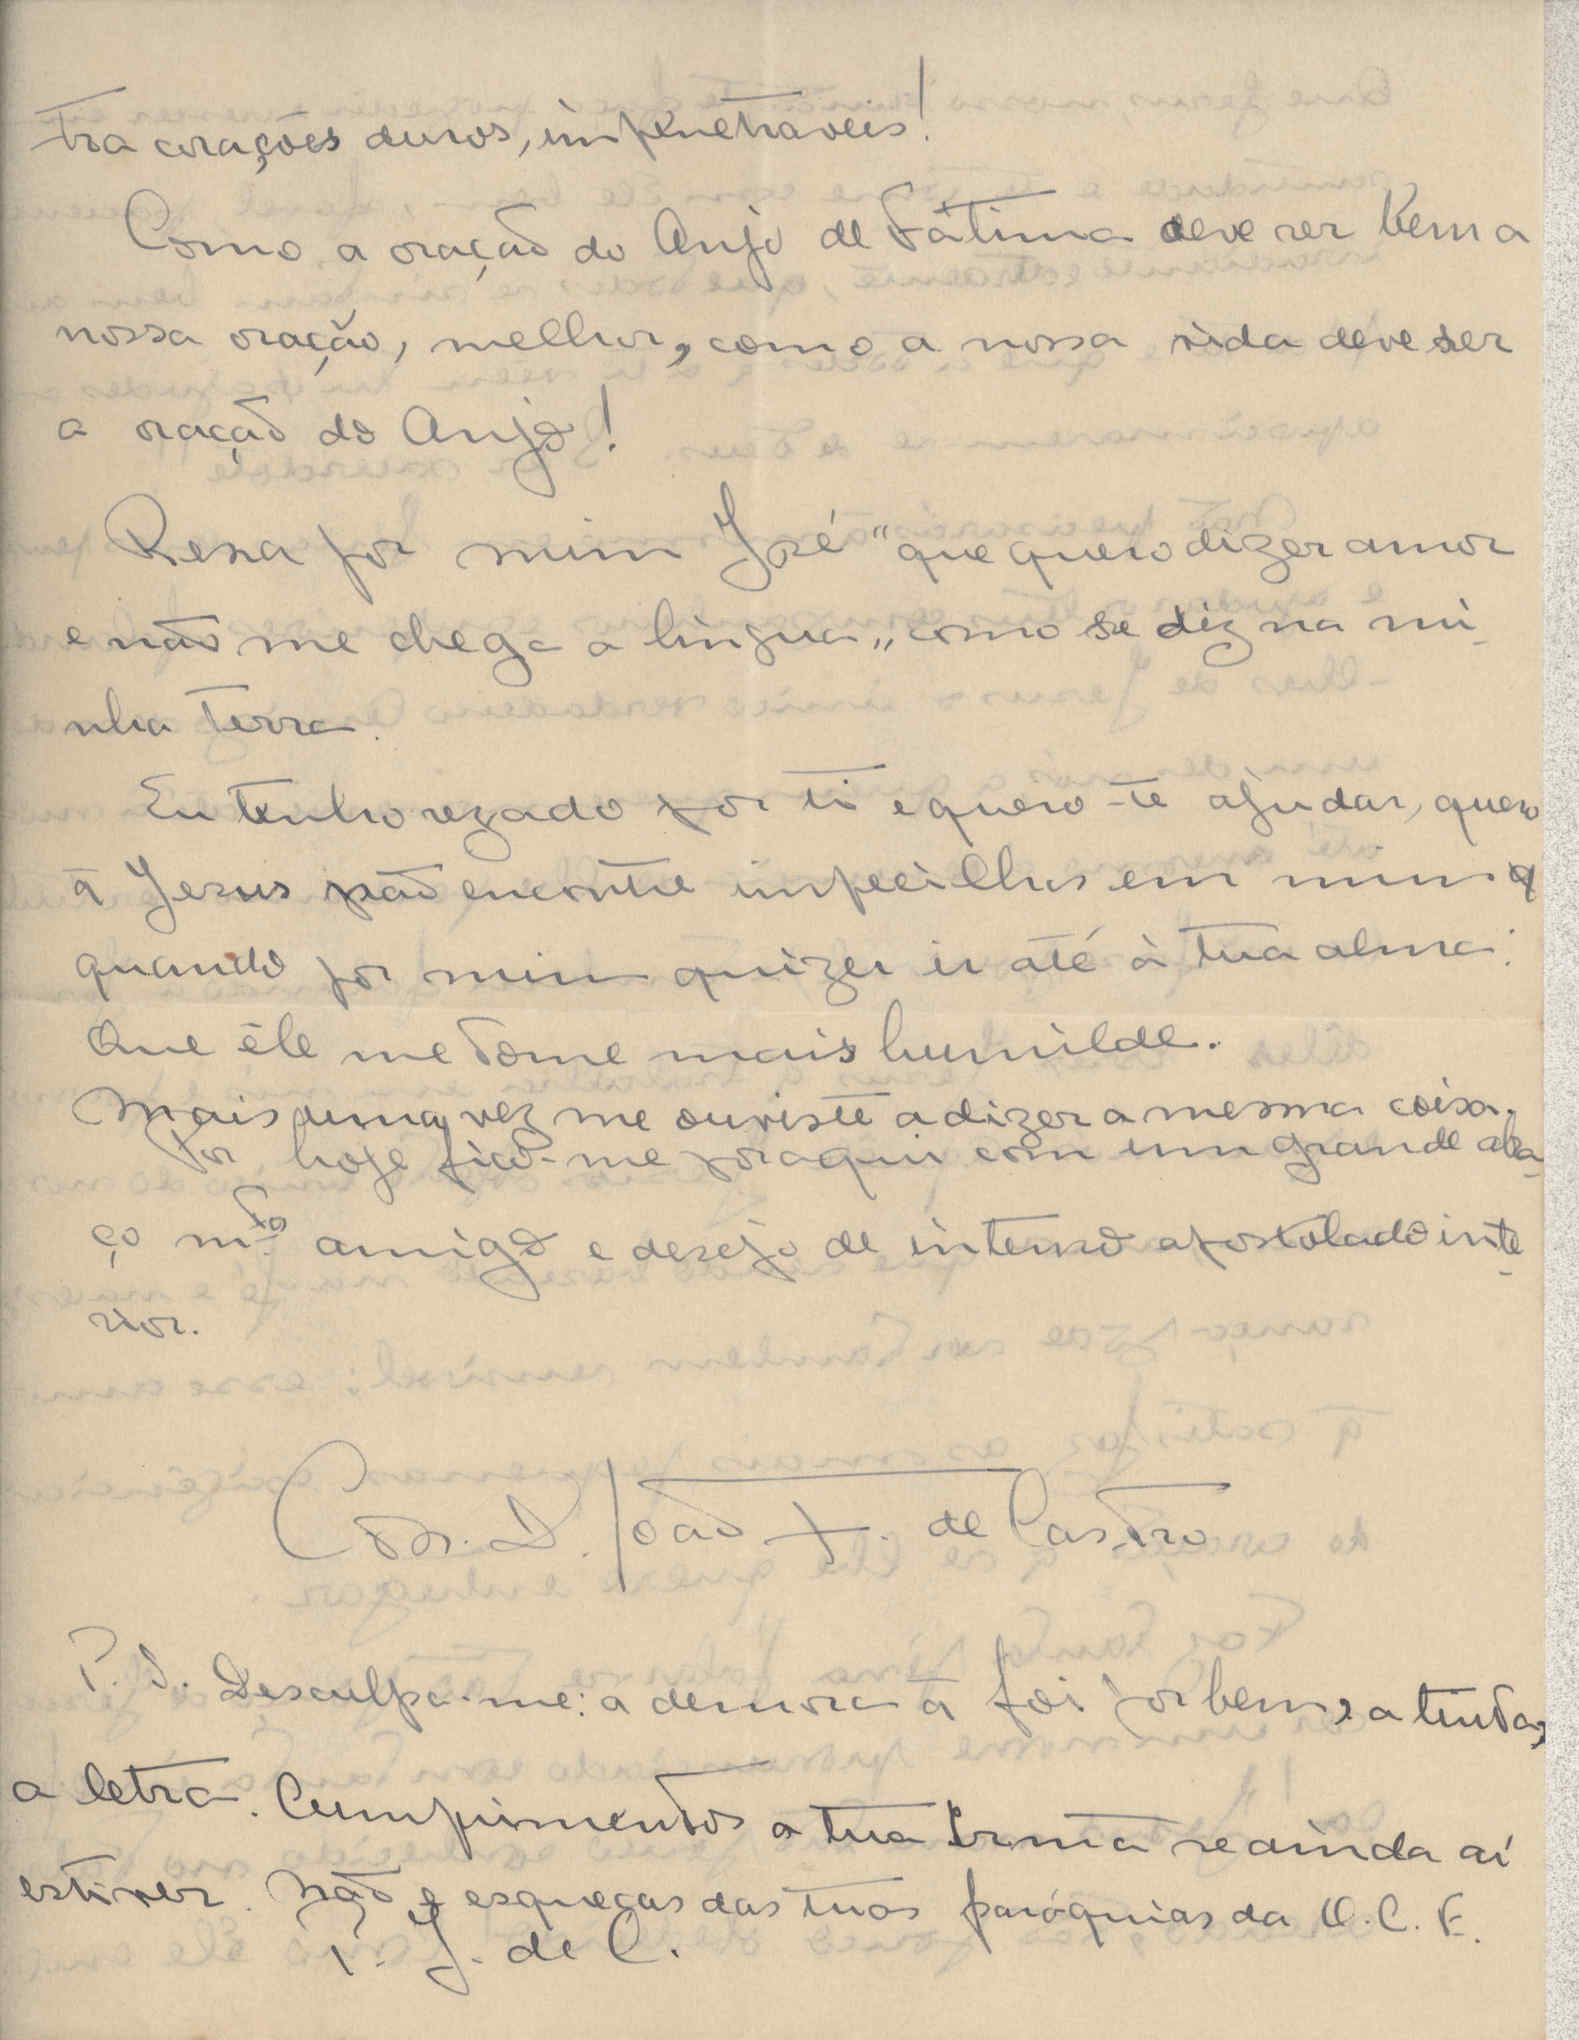 tra corações duros, impenetraveis!
Como a oração do Anjo de Fátima deve ser bem a
nossa oração, melhor, como a nossa vida deve ser
a oração do Anjo!
Resa por mim José "que quero dizer amor
e não me chega a lingua„ como se diz na mi-
nha terra.
Eu tenho rezado por ti e quero-te ajudar, quero
q̃ Jesus não encontre impecilhos em mim
quando por mim quizer ir até à tua alma.
Que êle me torne mais humilde.
Mais uma vez me ouviste a dizer a mesma coisa.
Por hoje fico-me por aqui com um grande abra-
ço mto amigo e desejo de intenso apostolado inte-
rior.
João de Castro
P. S. Desculpa-me: a demora q̃ foi por bem, a tinta,
a letra. Cumprimentos a tua Irmã se ainda aí
estiver. Não esqueças das tuas paróquias da O. C. F.
P. J. de C.